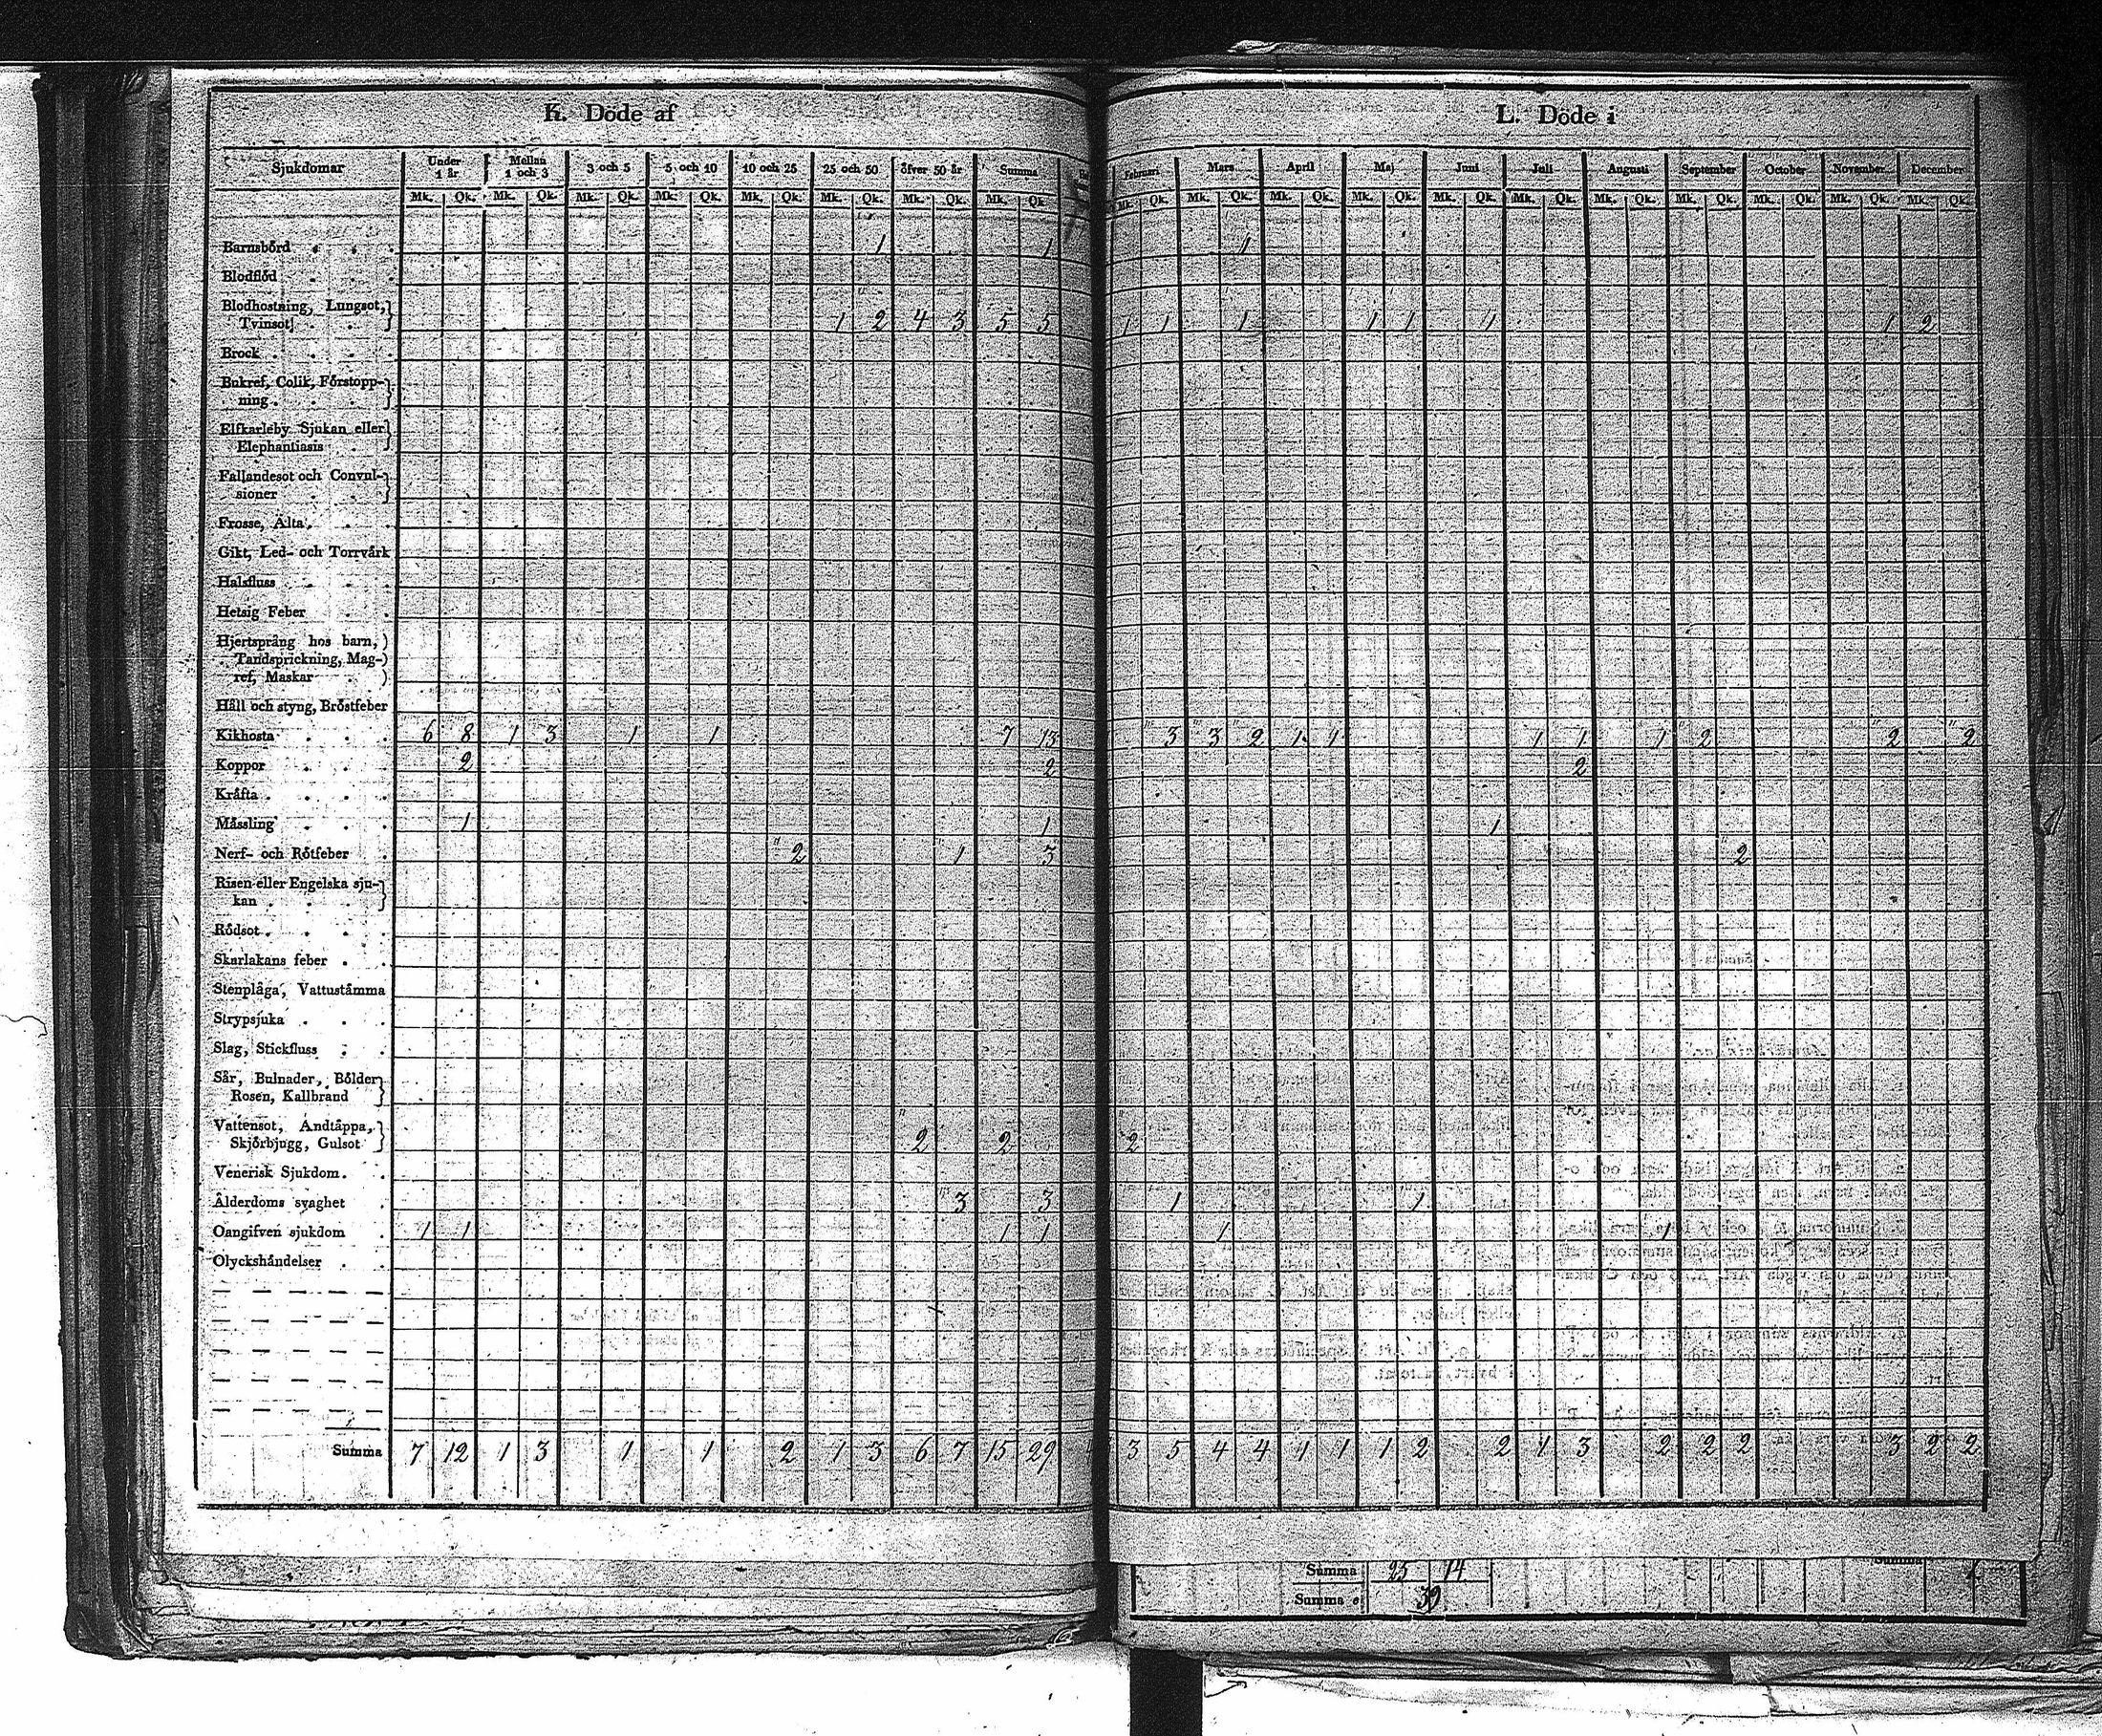 K. Döde af
L. Döde i
Sjukdomar Under 1 år Mellan 1 och 3 3 och 5 5 och 10 10 och 25 25 och 50 öfver 50 år Summa
Mk. Qk. Mk. Qk. Mk. Qk. Mk. Qk. Mk. Qk. Mk. Qk. Mk. Qk. Mk. Qk.
Februari Mars April Maj Juni Juli Augusti September October November December
Mk. Qk. Mk. Qk. Mk. Qk. Mk. Qk. Mk. Qk. Mk. Qk. Mk. Qk. Mk. Qk. Mk. Qk. Mk. Qk. Mk. Qk.
Barnsbörd 1 1 1
Blodflöd
Blodhostning, Lungsot,
Tvinsot 1 2 4 3 5 5 1 1 1 1 1 1 1 2
Brock
Bukref, Colik, Förstopp-
ning
Elfkarleby Sjukan eller
Elephantiasis
Fallandesot och Convul-
sioner
Frosse, Älta
Gikt, Led- och Torrvärk
Halsfluss
Hetsig Feber
Hjertsprång hos barn,
Tandsprickning, Mag-
ref, Maskar
Håll och styng, Bröstfeber
Kikhosta 6 8 1 3 1 1 7 13 3 3 2 1 1 1 1 1 2 2 2
Koppor 2 2 2
Kräfta
Mässling 1 1 1
Nerf- och Rötfeber 2 1 3 2
Risen eller Engelska sju-
kan
Rödsot
Skarlakans feber
Stenplåga, Vattustämma
Strypsjuka
Slag, Stickfluss
Sår, Bulnader, Bölder
Rosen, Kallbrand
Vattensot, Andtäppa,
Skjörbjugg, Gulsot 2 2 2
Venerisk Sjukdom
Ålderdoms svaghet 3 3 1 1
Oangifven sjukdom 1 1 1 1 1 1
Olyckshändelser
Summa 7 12 1 3 1 1 2 1 3 6 7 15 29 3 5 4 4 1 1 1 2 2 1 3 2 2 2 3 2 2
Summa 25 14
Summa
Summa 39